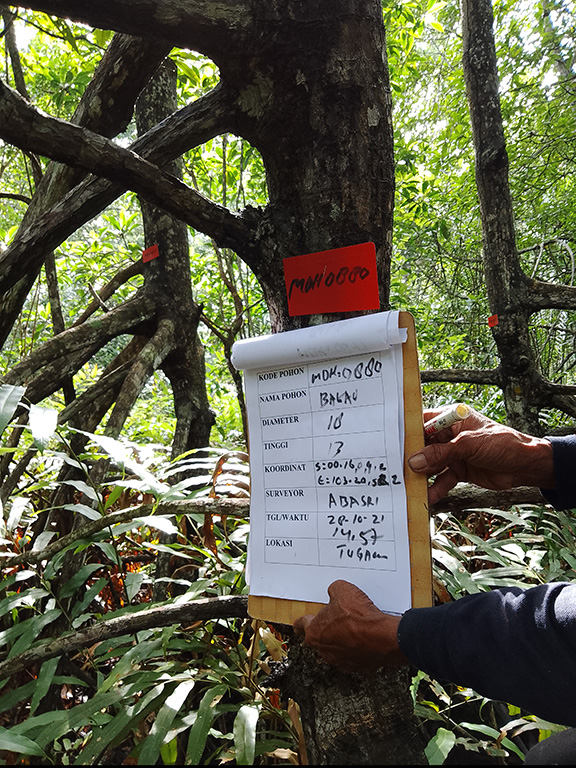 MDH0880
KODE POHON MDH.0880
NAMA POHON BAKAU
DIAMETER 18
TINGGI 13
KOORDINAT S:00.16,0,9.2
E:103-20,
SURVEYOR ABASRI
TGL/WAKTU 20-10-21
14.57
LOKASI